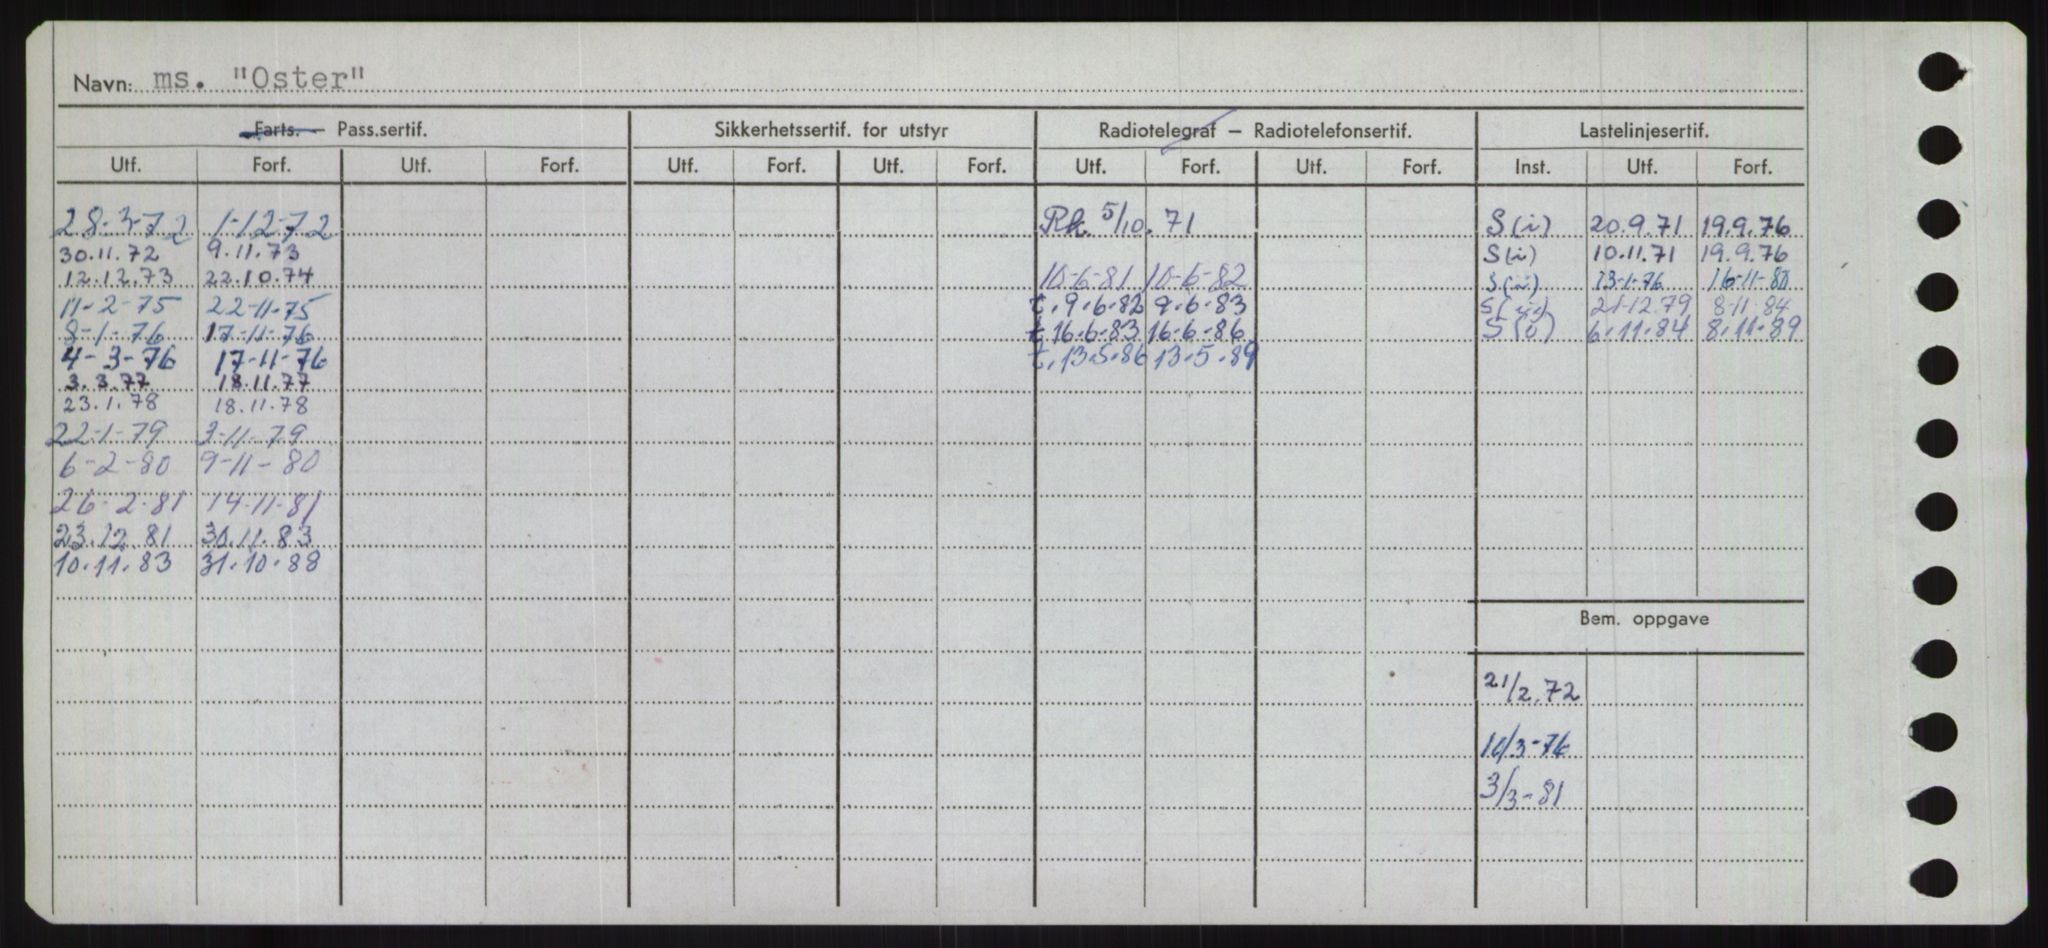 Navn: ms. "Oster"
Farts. - Pass.sertif. Sikkerhetssertif. for utstyr Radiotelegraf - Radiotelefonsertif. Lastelinjesertif.
Utf. Forf. Utf. Forf. Utf. Forf. Utf. Forf. Utf. Forf. Utf. Forf. Inst. Utf. Forf.
28-3-72 1-12-72 Rk. 5/10.71 S(i) 20.9.71 19.9.76
30.11.72 9.11.73 S(i) 10.11.71 19.9.76
12.12.73 22.10.74 10-6-81 10-6-82 S(i) 13-1-76 16-11-80
11-2-75 22-11-75 t. 9.6.82 9.6.83 21-12.79 8-11-84
8-1-76 17-11-76 t 16.6.83 16.6.86 S(i) 6.11.84 8.11.89
4-3-76 17-11-76 t. 13.5.86 13.5.89
3.3.77 18.11.77
23.1.78 18.11.78
22-1-79 3-11-79
6-2-80 9-11-80
26-2-81 14-11-81
23.12.81 30.11.83
10.11.83 31.10.88
Bem. oppgave
21/2.72
10/3-76
3/3-81